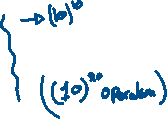 → (10)¹⁰
((10)²⁰ operation)